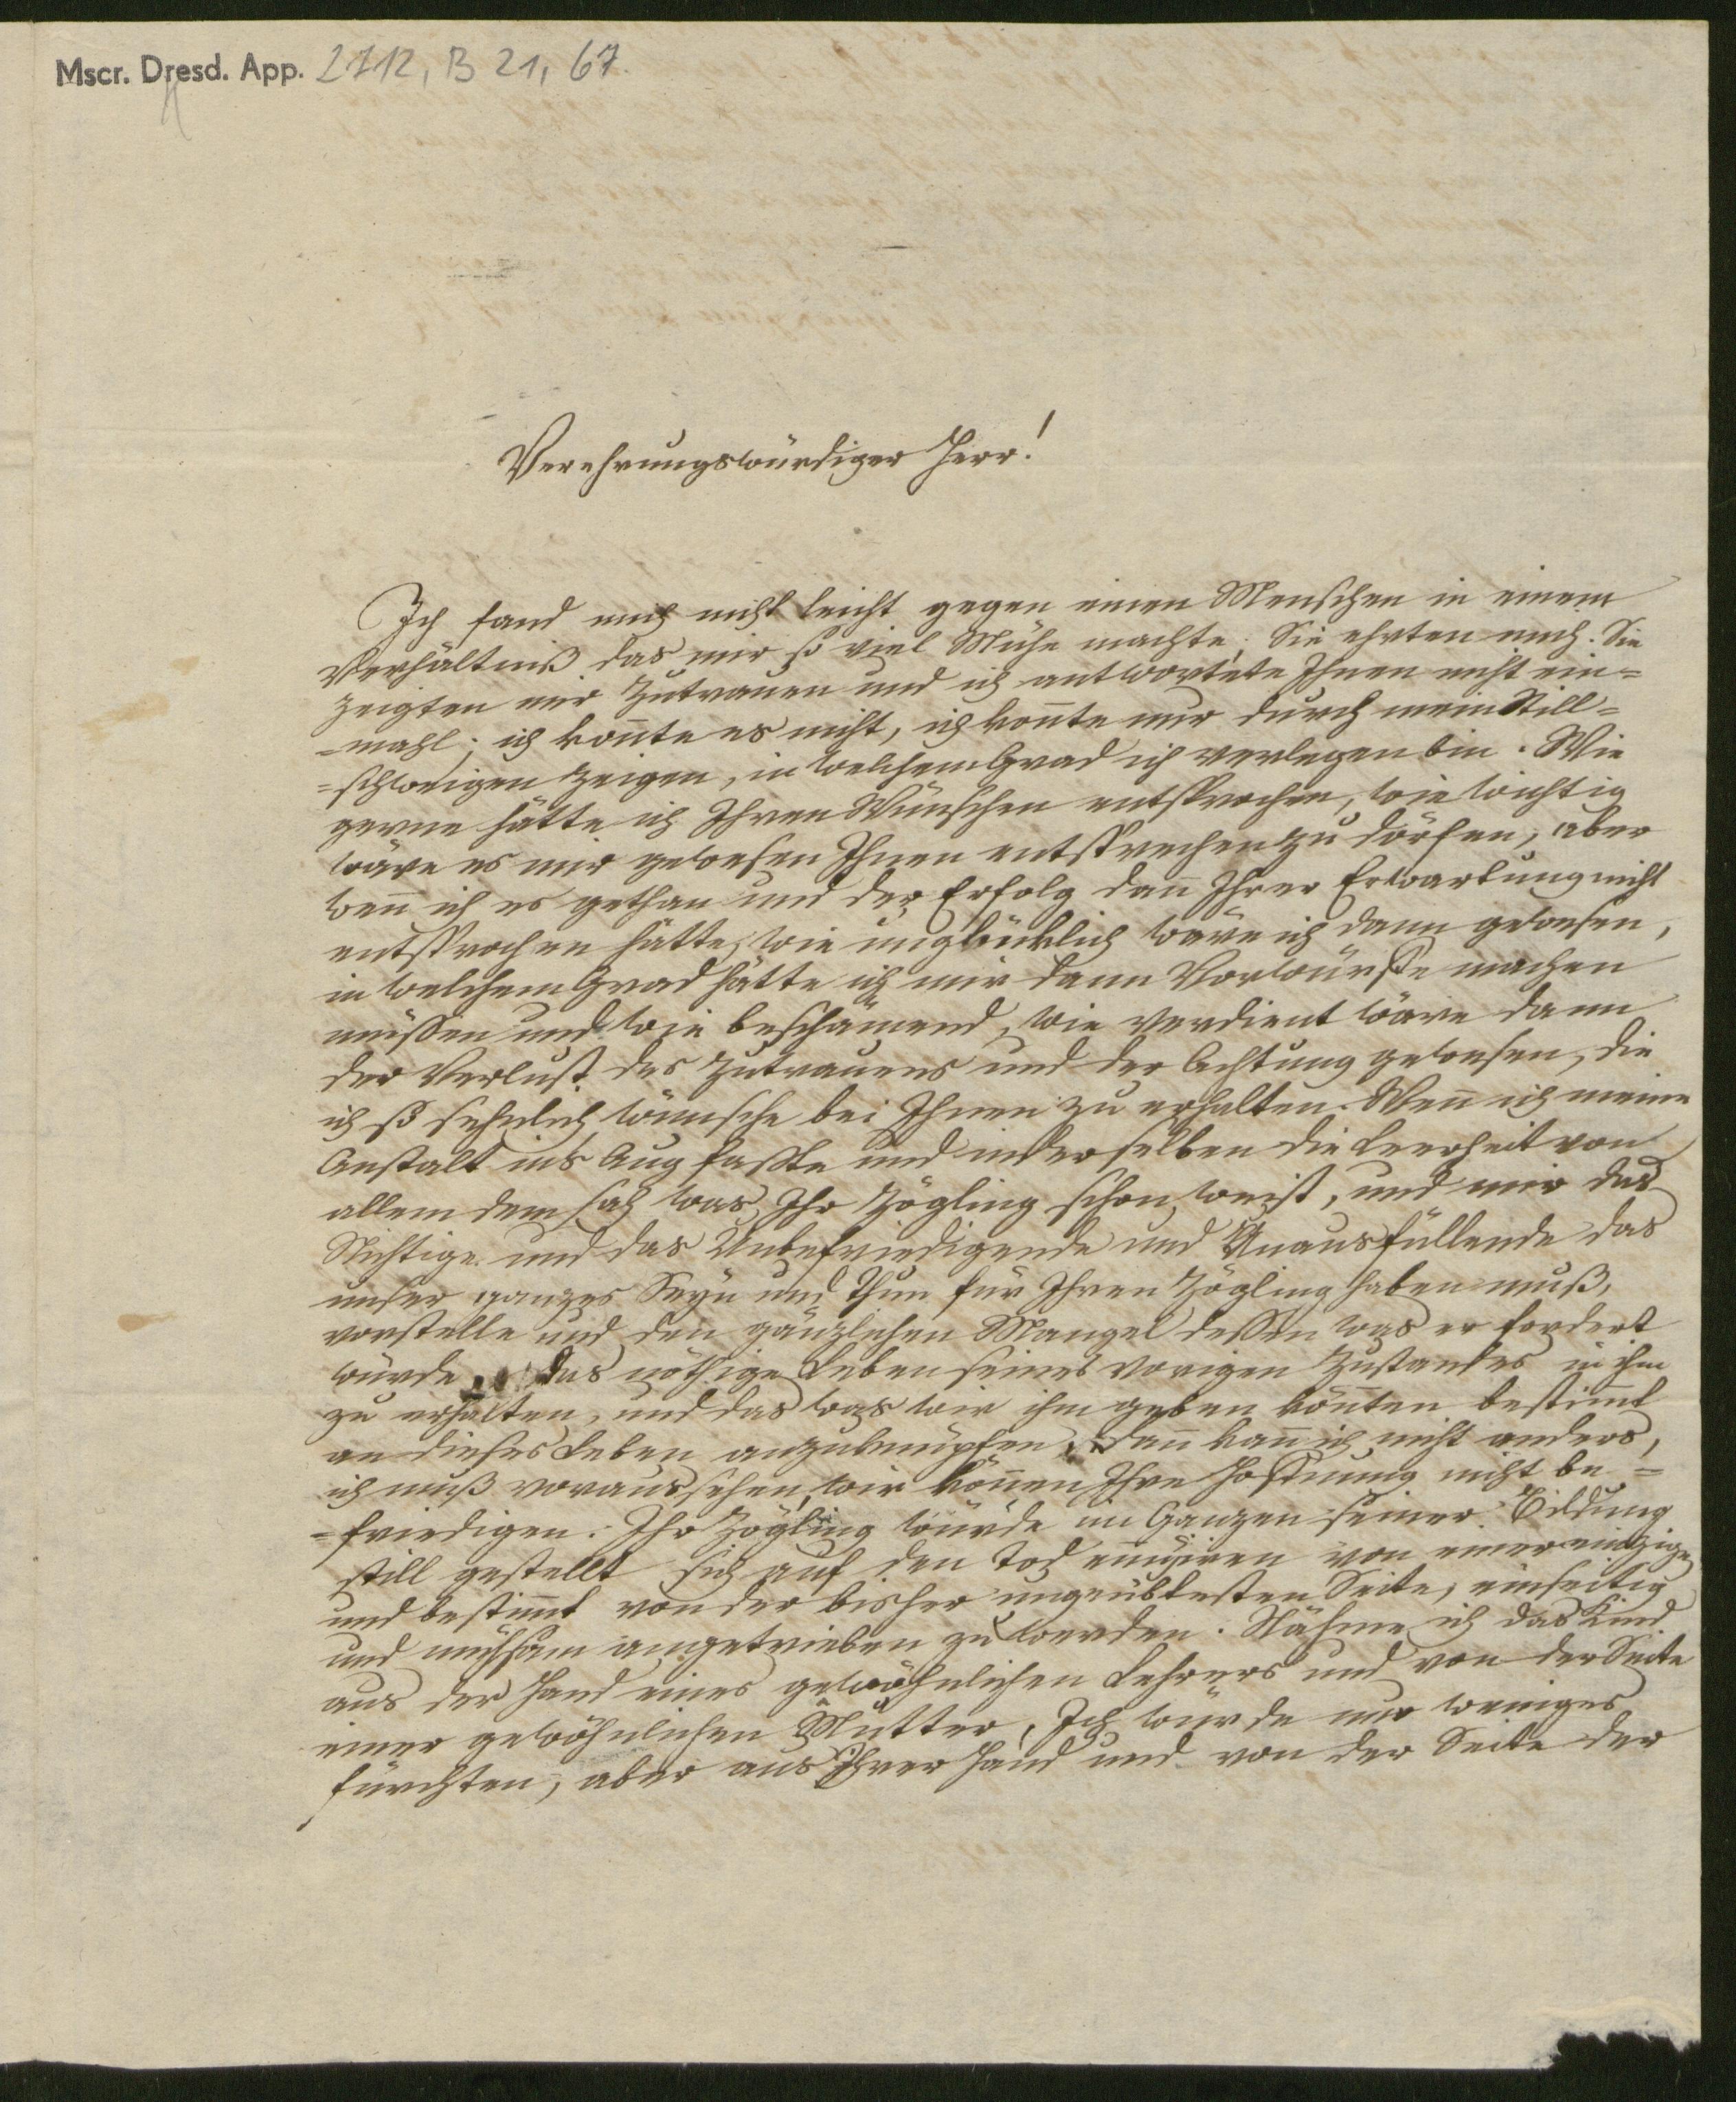 Mscr. Dresd. App. 2712, B 21, 67.
Verehrungswürdiger Herr!
Ich fand mich nicht leicht gegen einen Menschen in einem
Verhältniß das mir so viel Mühe machte. Sie ehrten mich. Sie
zeigten mir Zutrauen und ich antwortete Ihnen nicht ein=
=mahl; ich konte es nicht, ich konte nur durch mein Still=
=schweigen zeigen, in welchem Grad ich verlegen bin. Wie
gerne hätte ich Ihren Wünschen entsprochen, wie wichtig
wäre es mir gewesen Ihnen entsprechen zu dörfen, aber
wen ich es gethan und der Erfolg dan Ihrer Erwartung nicht
entsprochen hätte, wie unglücklich wäre ich dann gewesen,
in welchem Grad hätte ich mir dann Vorwürffe machen
müssen und wie beschämend, wie verdient wäre dann
der Verlust des Zutrauens und der Achtung gewesen, die
ich so sehnlich wünsche bei Ihnen zu erhalten. Wen ich meine
Anstalt ins Aug faßte und in derselben die Leerheit von
allem dem sah was Ihr Zögling schon weißt, und mir das
Nichtige und das Unbefriedigende und Unausfüllende das
unser ganzes Seyn und Thun für Ihren Zögling haben muß,
vorstelle und den gänzlichen Mangel dessen was erfordert
würde das nöthige Leben seines vorigen Zustandes in ihm
zu erhalten, und das was wir ihm geben könten bestimt
an dieses Leben anzuknüpfen, dan kan ich nicht anders,
ich muß voraussehen, wir können Ihre Hoffnung nicht be=
=friedigen. Ihr Zögling würde im Ganzen seiner Bildung
still gestellt sich auf den Tod ennüiren von einer einzigen
und bestimt von der bisher ungeübtesten Seite, einseitig
und mühsam angetrieben zu werden. Nähme ich das Kind
aus der Hand eines gewöhnlichen Lehrers und von der Seite
einer gewöhnlichen Mutter, Ich würde nur weniges
fürchten, aber aus Ihrer Hand und von der Seite der